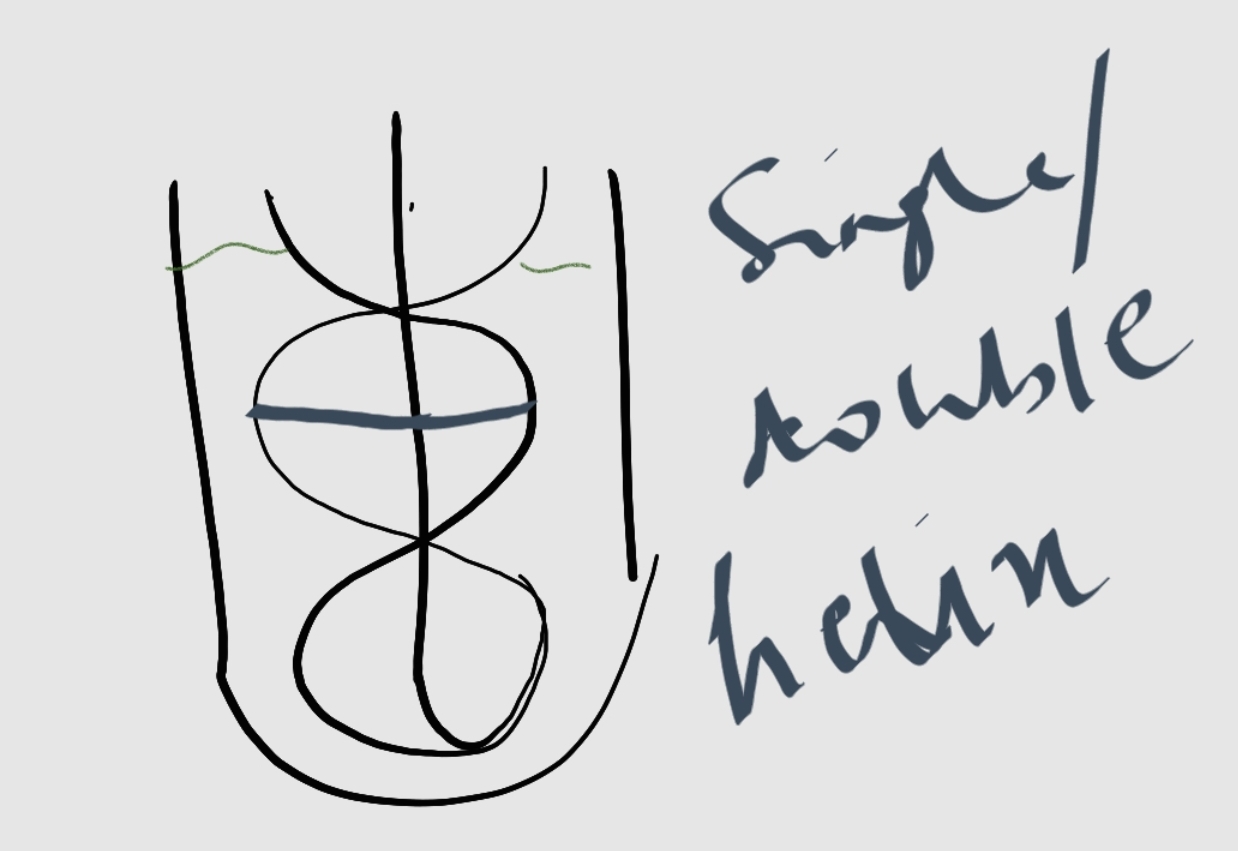 Single/
double
helix